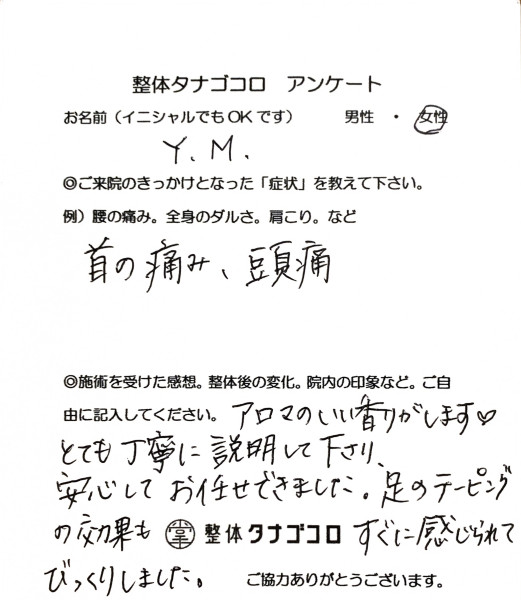 整体タナゴコロ　アンケート
お名前（イニシャルでもOKです）　男性　・　女性
Y. M.
◎ご来院のきっかけとなった「症状」を教えて下さい。
例）腰の痛み。全身のダルさ。肩こり。など
首の痛み、頭痛
◎施術を受けた感想。整体後の変化。院内の印象など。ご自
由に記入してください。アロマのいい香りがします♡
とても丁寧に説明して下さり、
安心してお任せできました。足のテーピング
の効果も 掌 整体タナゴコロ すぐに感じられて
びっくりしました。　ご協力ありがとうございます。